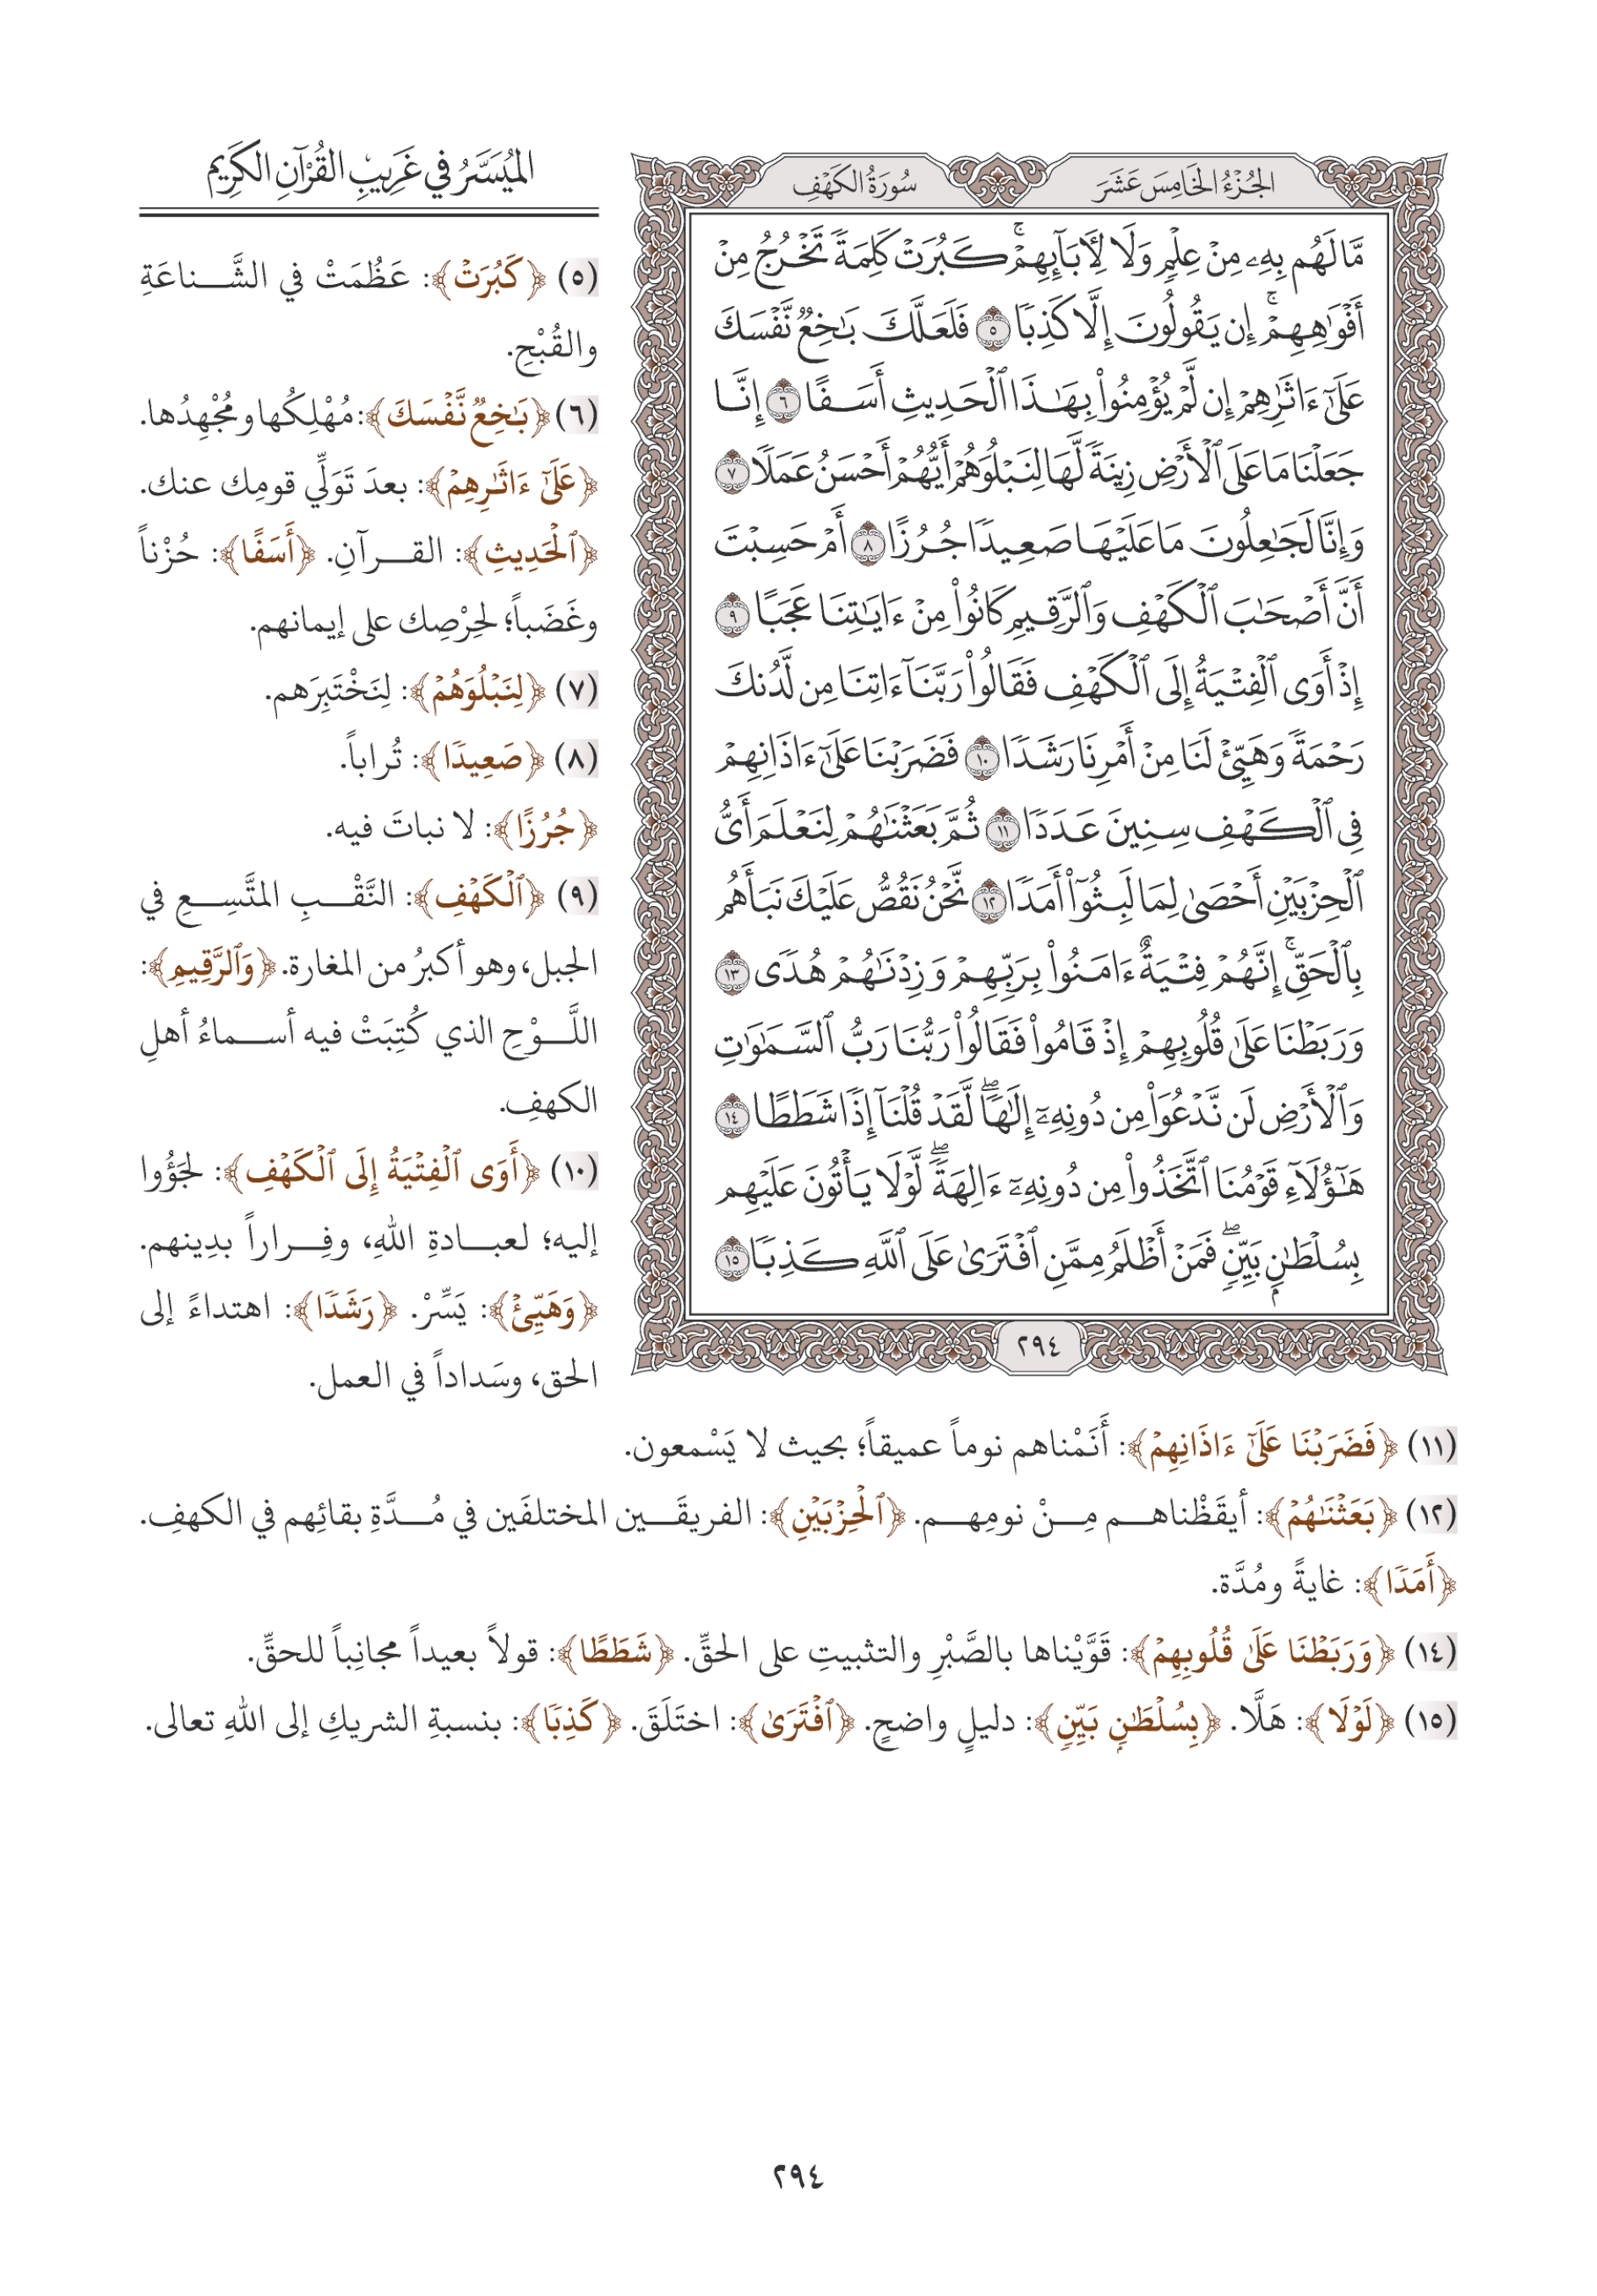 الميُسَّرُ في غَرِيبِ القُرْآنِ الكَرِيم
الجُزْءُ الخَامِسَ عَشَرَ
سُورَةُ الكَهْفِ
مَّا لَهُم بِهِۦ مِنْ عِلْمٖ وَلَا لِأٓبَآئِهِمْۚ كَبُرَتْ كَلِمَةٗ تَخْرُجُ مِنْ
أَفْوَٰهِهِمْۚ إِن يَقُولُونَ إِلَّا كَذِبٗا ٥ فَلَعَلَّكَ بَٰخِعٞ نَّفْسَكَ
عَلَىٰٓ ءَاثَٰرِهِمْ إِن لَّمْ يُؤْمِنُوا۟ بِهَٰذَا ٱلْحَدِيثِ أَسَفًا ٦ إِنَّا
جَعَلْنَا مَا عَلَى ٱلْأَرْضِ زِينَةٗ لَّهَا لِنَبْلُوَهُمْ أَيُّهُمْ أَحْسَنُ عَمَلٗا ٧
وَإِنَّا لَجَٰعِلُونَ مَا عَلَيْهَا صَعِيدٗا جُرُزًا ٨ أَمْ حَسِبْتَ
أَنَّ أَصْحَٰبَ ٱلْكَهْفِ وَٱلرَّقِيمِ كَانُوا۟ مِنْ ءَايَٰتِنَا عَجَبًا ٩
إِذْ أَوَى ٱلْفِتْيَةُ إِلَى ٱلْكَهْفِ فَقَالُوا۟ رَبَّنَآ ءَاتِنَا مِن لَّدُنكَ
رَحْمَةٗ وَهَيِّئْ لَنَا مِنْ أَمْرِنَا رَشَدٗا ١٠ فَضَرَبْنَا عَلَىٰٓ ءَاذَانِهِمْ
فِي ٱلْكَهْفِ سِنِينَ عَدَدٗا ١١ ثُمَّ بَعَثْنَٰهُمْ لِنَعْلَمَ أَيُّ
ٱلْحِزْبَيْنِ أَحْصَىٰ لِمَا لَبِثُوٓا۟ أَمَدٗا ١٢ نَّحْنُ نَقُصُّ عَلَيْكَ نَبَأَهُم
بِٱلْحَقِّۚ إِنَّهُمْ فِتْيَةٌ ءَامَنُوا۟ بِرَبِّهِمْ وَزِدْنَٰهُمْ هُدٗى ١٣
وَرَبَطْنَا عَلَىٰ قُلُوبِهِمْ إِذْ قَامُوا۟ فَقَالُوا۟ رَبُّنَا رَبُّ ٱلسَّمَٰوَٰتِ
وَٱلْأَرْضِ لَن نَّدْعُوَا۟ مِن دُونِهِۦٓ إِلَٰهٗاۖ لَّقَدْ قُلْنَآ إِذٗا شَطَطًا ١٤
هَٰٓؤُلَآءِ قَوْمُنَا ٱتَّخَذُوا۟ مِن دُونِهِۦٓ ءَالِهَةٗۖ لَّوْلَا يَأْتُونَ عَلَيْهِم
بِسُلْطَٰنِۭ بَيِّنٖۖ فَمَنْ أَظْلَمُ مِمَّنِ ٱفْتَرَىٰ عَلَى ٱللَّهِ كَذِبٗا ١٥
٢٩٤
(٥) ﴿كَبُرَتْ﴾: عَظُمَتْ في الشَّناعَةِ
والقُبْحِ.
(٦) ﴿بَٰخِعٞ نَّفْسَكَ﴾: مُهْلِكُها ومُجْهِدُها.
﴿عَلَىٰٓ ءَاثَٰرِهِمْ﴾: بعدَ تَوَلِّي قومِك عنك.
﴿ٱلْحَدِيثِ﴾: القرآنِ. ﴿أَسَفًا﴾: حُزْناً
وغَضَباً؛ لحِرْصِك على إيمانهم.
(٧) ﴿لِنَبْلُوَهُمْ﴾: لِنَخْتَبِرَهم.
(٨) ﴿صَعِيدٗا﴾: تُراباً.
﴿جُرُزًا﴾: لا نباتَ فيه.
(٩) ﴿ٱلْكَهْفِ﴾: النَّقْبِ المتَّسِعِ في
الجبل، وهو أكبرُ من المغارة. ﴿وَٱلرَّقِيمِ﴾:
اللَّوْحِ الذي كُتِبَتْ فيه أسماءُ أهلِ
الكهفِ.
(١٠) ﴿أَوَى ٱلْفِتْيَةُ إِلَى ٱلْكَهْفِ﴾: لجَؤُوا
إليه؛ لعبادةِ اللهِ، وفِراراً بدِينهم.
﴿وَهَيِّئْ﴾: يَسِّرْ. ﴿رَشَدٗا﴾: اهتداءً إلى
الحق، وسَداداً في العمل.
(١١) ﴿فَضَرَبْنَا عَلَىٰٓ ءَاذَانِهِمْ﴾: أَنَمْناهم نوماً عميقاً؛ بحيث لا يَسْمعون.
(١٢) ﴿بَعَثْنَٰهُمْ﴾: أيقَظْناهم مِنْ نومِهم. ﴿ٱلْحِزْبَيْنِ﴾: الفريقَين المختلفَين في مُدَّةِ بقائِهم في الكهفِ.
﴿أَمَدٗا﴾: غايةً ومُدَّة.
(١٤) ﴿وَرَبَطْنَا عَلَىٰ قُلُوبِهِمْ﴾: قَوَّيْناها بالصَّبْرِ والتثبيتِ على الحقِّ. ﴿شَطَطًا﴾: قولاً بعيداً مجانِباً للحقِّ.
(١٥) ﴿لَوْلَا﴾: هَلَّا. ﴿بِسُلْطَٰنِۭ بَيِّنٖ﴾: دليلٍ واضحٍ. ﴿ٱفْتَرَىٰ﴾: اختَلَقَ. ﴿كَذِبٗا﴾: بنسبةِ الشريكِ إلى اللهِ تعالى.
٢٩٤